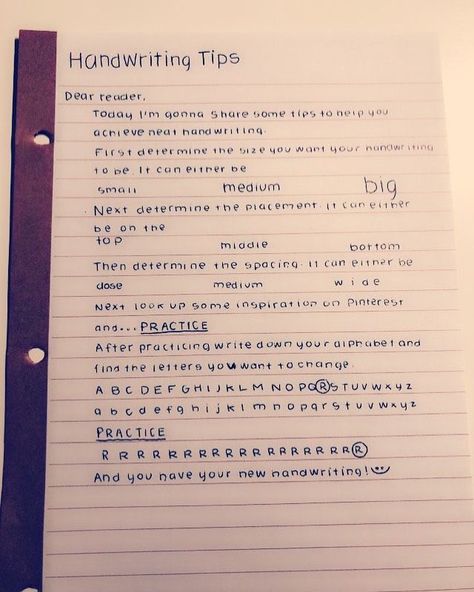 Handwriting Tips
Dear reader,
Today I'm gonna share some tips to help you
achieve neat handwriting.
First determine the size you want your handwriting
to be. It can either be
small medium big
Next determine the placement. It can either
be on the
top middle bottom
Then determine the spacing. It can either be
close medium wide
Next look up some inspiration on Pinterest
and... PRACTICE
After practicing write down your alphabet and
find the letters you want to change.
A B C D E F G H I J K L M N O P Q R S T U V W X Y Z
a b c d e f g h i j k l m n o p q r s t u v w x y z
PRACTICE
R R R R R R R R R R R R R R R R R R R
And you have your new handwriting!